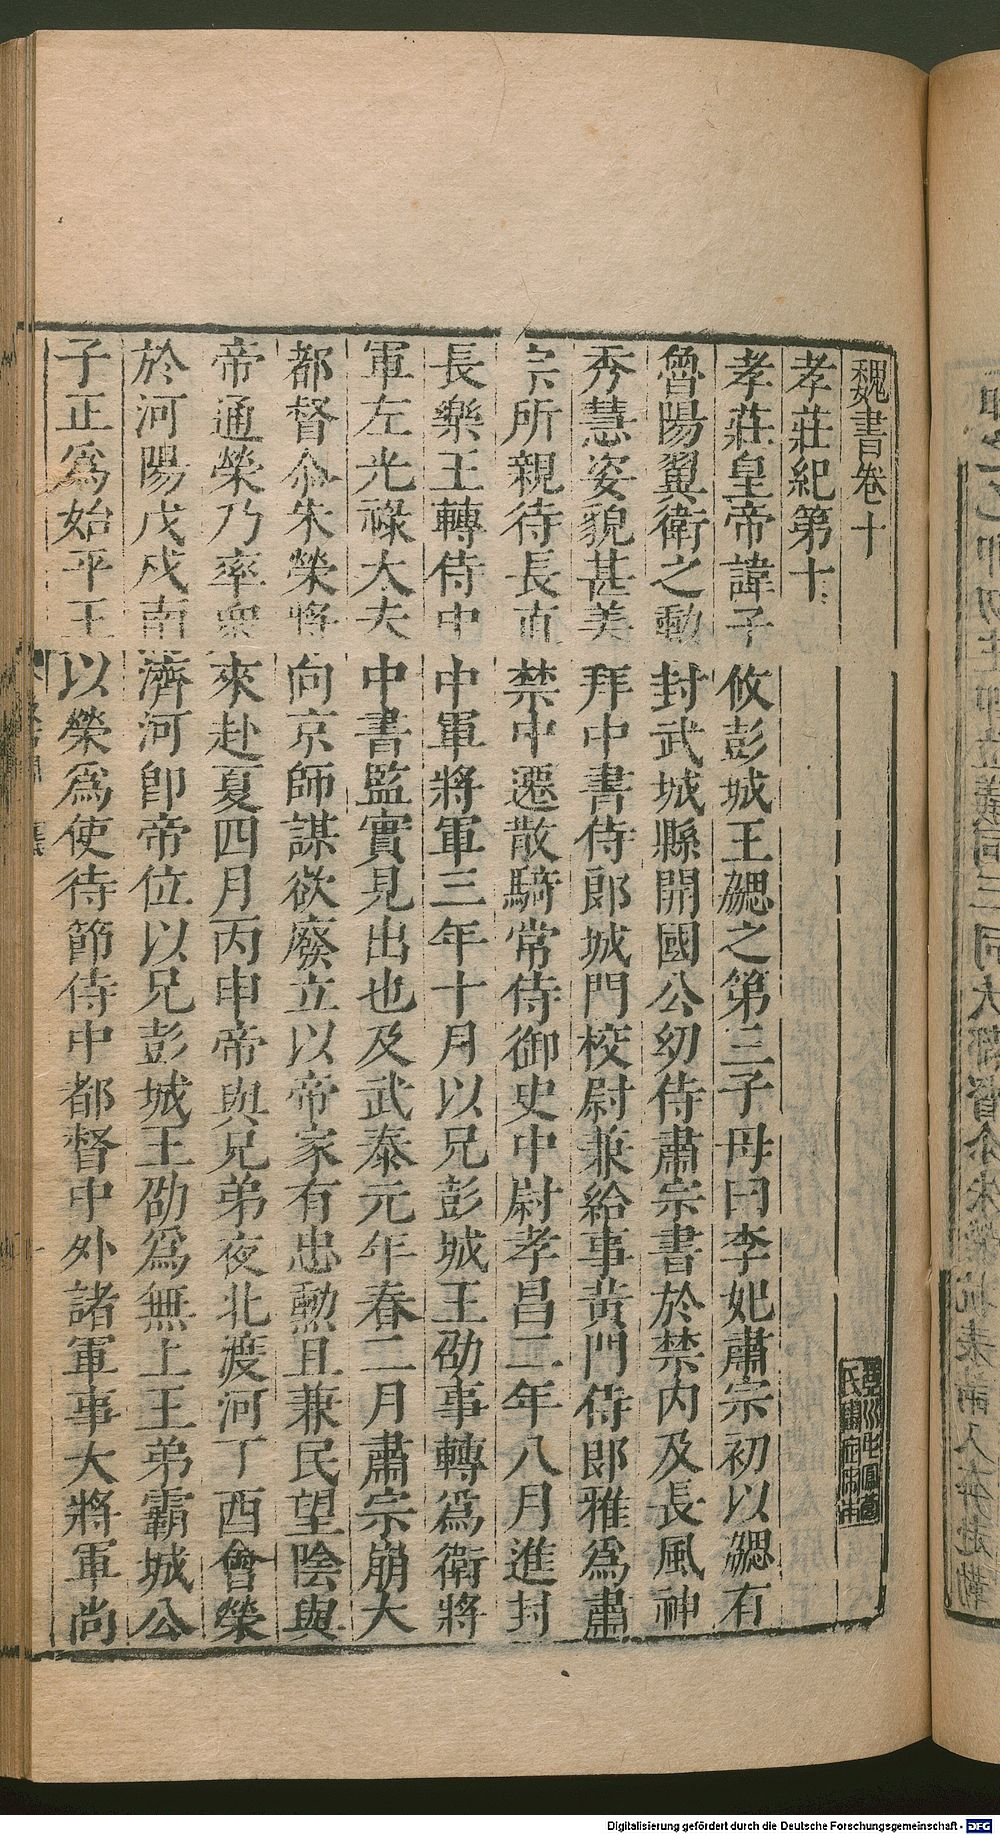 魏書卷十
孝莊紀第十
孝莊皇帝諱子攸彭城王勰之第三子母曰李妃肅宗初以勰有
魯陽翼衛之勳封武城縣開國公幼侍肅宗書於禁内及長風神
秀慧姿貌甚美拜中書侍郎城門校尉兼給事黃門侍郎雅爲肅
宗所親待長直禁中遷散騎常侍御史中尉孝昌二年八月進封
長樂王轉侍中中軍將軍三年十月以兄彭城王劭事轉爲衛將
軍左光祿大夫中書監實見出也及武泰元年春二月肅宗崩大
都督尒朱榮將向京師謀欲廢立以帝家有忠勳且兼民望陰與
帝通榮乃率衆來赴夏四月丙申帝與兄弟夜北渡河丁酉會榮
於河陽戊戌南濟河即帝位以兄彭城王劭爲無上王弟霸城公
子正爲始平王以榮爲使待節侍中都督中外諸軍事大將軍尚
Digitalisierung gefördert durch die Deutsche Forschungsgemeinschaft - DFG